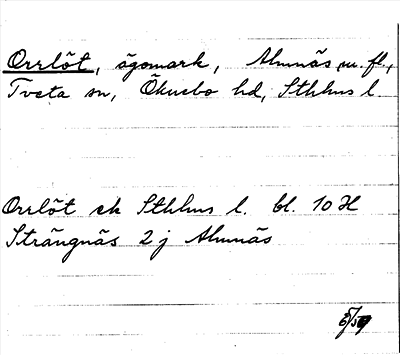 Orrlöt, ägomark, Almnäs m. fl.,
Tveta sn, Öknebo hd, Sthlms l.
Orrlöt ek Sthlms l. bl. 10 H
Strängnäs 2 j Almnäs